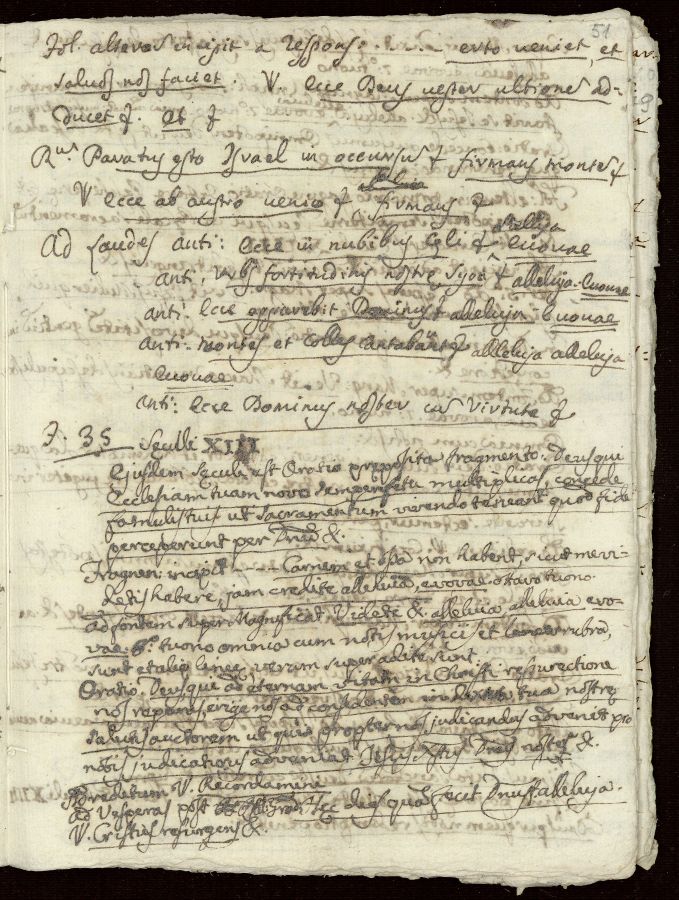 51
Fol. alteros incipit a respons: . . . — erto veniet, et
salvos nos faciet. V. Ecce Deus vester ultiones ad-
ducet &. Et &
Rus Paratus esto Israel in occursus & firmans montes &
V Ecce ab austro venio & alleluia firmans &
Ad Laudes anti: Ecce in nubibus Celi & allelja Euouae
anti. Urbs fortitudinis nostre Syon & alleluja. Euouae
anti. Ecce apparebit Dominus & alleluja. Euouae
anti. Montes et Colles cantabunt & alleluja alleluja
Euouae
anti. Ecce Dominus noster cus virtute &
F. 35 Seculi XIII
Ejusdem Seculi est Oratio preposita fragmento. Deus qui
Ecclesiam tuam novo semper fetu multiplicas, concede
famulis tuis ut Sacramentum vivendo teneant quod fide
perceperunt per Dnum &.
Fragmen: incipit — Carnem et ossa non habent, sicut me vi-
detis habere, jam credite alleluia, evovae ottavo tuono.
ad fontem super Magnificat Videte & alleluia alleluia evo-
vae tuono omnia cum notis musicis et linea rubra,
sunt et alie linee verum super adite sunt.
Oratio. Deus qui ad eternam vitam in Christi resurectione
nos reparas, erige nos ad considentem in dextera tua nostre
salutis auctorem ut qui propter nos judicandus advenit pro
nobis judicaturus adveniat Jesus Xstus Dnus noster &.
V. Recordamini
ad Vesperas post Hec dies quam fecit Dnus alleluja.
V. Cristus resurgens &.